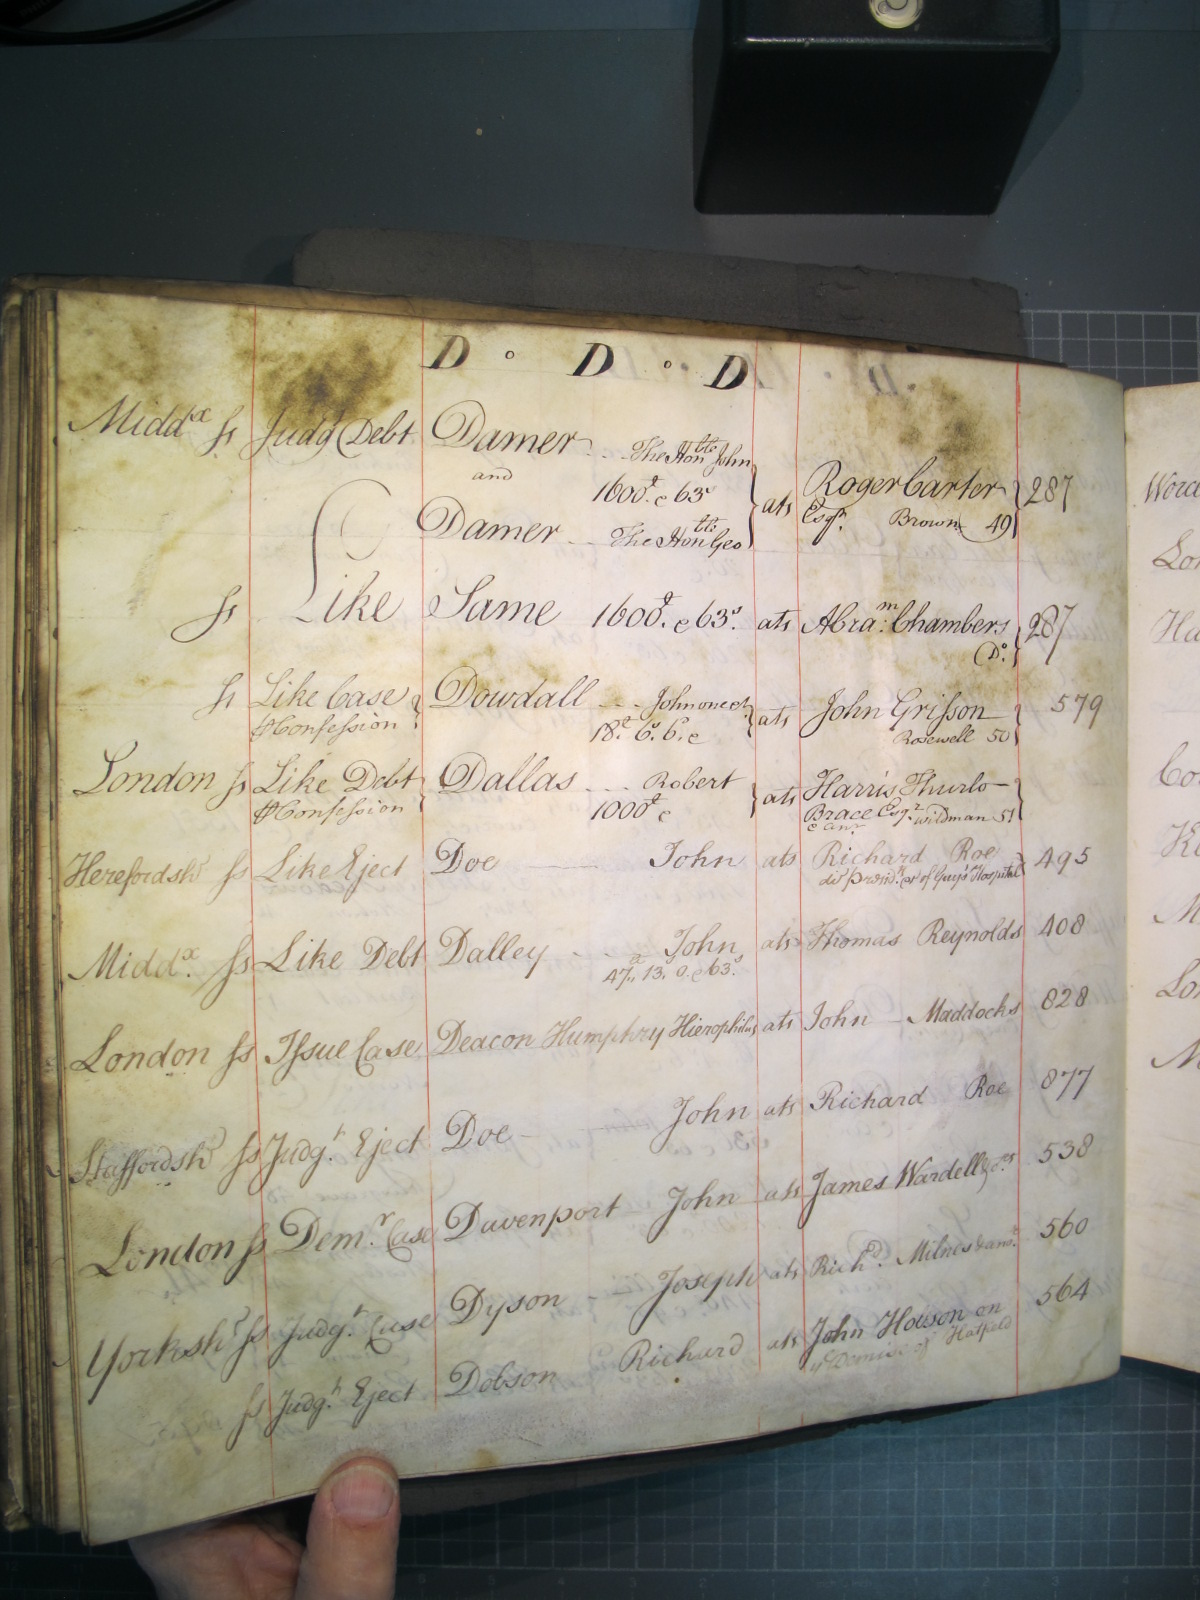 D . D . D
Midd.x ss Judg.t Debt Damer - - The Hon.ble John
and 1600.£ & 63.s } ats Roger Carter } 287
Damer - - The Hon.ble Geo Esq.r Brown 49
ss Like Same 1600.£ & 63.s ats Abra.m Chambers } 287
D.o
ss Like Case } Dowdall - - - John one &c } ats John Grisson } 579
Confession 18.£ 6.s 6. & Rosewell 50
London ss Like Debt } Dallas - - - Robert } ats Harris Thurlo }
Confession 1000.£ & Brace Esq.r Wildman 51
Herefordsh.r ss Like Eject Doe John ats Richard Roe 495
of Guy's Hospital
Midd.x ss Like Debt Dalley - - John ats Thomas Reynolds 408
47. 13. 0. & 63.s
London ss Issue Case Deacon Humphry Hierophilus ats John - Maddocks 828
Staffordsh.r ss Judg.t Eject Doe - John ats Richard Roe 877
London ss Dem.r Case Davenport John ats James Wardell & o.rs 538
Yorksh.r ss Judg.t Case Dyson - Joseph ats Rich.d Milnes & an.r 560
ss Judg.t Eject Dobson Richard ats John Howson on 564
y.e Demise of Hatfield
Lon
Co
M
Lo